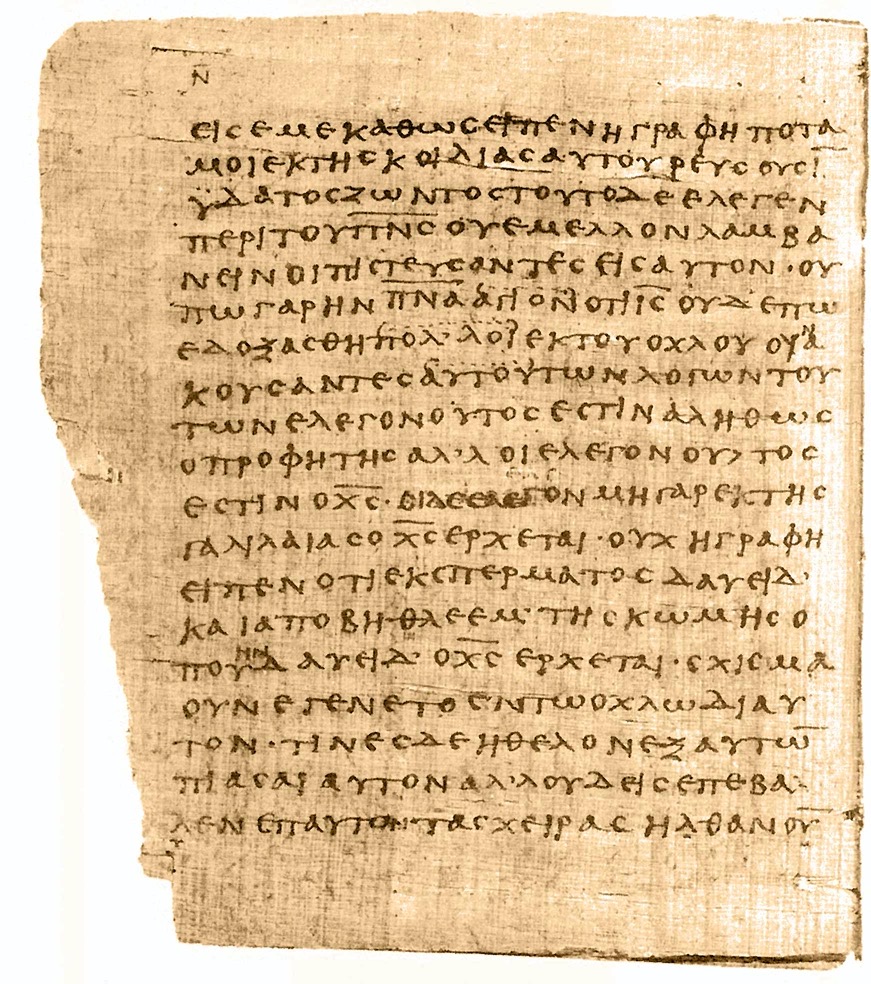 Ν̅
ΕΙϹΕΜΕΚΑΘωϹΕΙΠΕΝΗΓΡΑΦΗΠΟΤΑ
ΜΟΙΕΚΤΗϹΚΟΙΛΙΑϹΑΥΤΟΥΡΕΥϹΟΥϹΙ̅
ΫΔΑΤΟϹΖωΝΤΟϹΤΟΥΤΟΔΕΕΛΕΓΕΝ
ΠΕΡΙΤΟΥΠ̅Ν̅Ϲ̅ΟΥΕΜΕΛΛΟΝΛΑΜΒΑ
ΝΕΙΝΟΙΠΙϹΤΕΥϹΑΝΤΕϹΕΙϹΑΥΤΟΝ·ΟΥ
ΠωΓΑΡΗΝΠ̅Ν̅Α̅ΑΓΙΟΝΟΤΙΙ̅Ϲ̅ΟΥΔΕΠω
ΕΔΟΞΑϹΘΗΠΟΛ᾿ΛΟΙΕΚΤΟΥΟΧΛΟΥΟΙΑ
ΚΟΥϹΑΝΤΕϹΑΥΤΟΥΤωΝΛΟΓωΝΤΟΥ
ΤωΝΕΛΕΓΟΝΟΥΤΟϹΕϹΤΙΝΑΛΗΘωϹ
ΟΠΡΟΦΗΤΗϹΑΛ᾿ΛΟΙΕΛΕΓΟΝΟΥΤΟϹ
ΕϹΤΙΝΟΧ̅Ϲ̅· ΓΟΝΜΗΓΑΡΕΚΤΗϹ
ΓΑΛΙΛΑΙΑϹΟΧ̅Ϲ̅ΕΡΧΕΤΑΙ·ΟΥΧΗΓΡΑΦΗ
ΕΙΠΕΝΟΤΙΕΚϹΠΕΡΜΑΤΟϹΔΑΥΕΙΔ᾿
ΚΑΙΑΠΟΒΗΘΛΕΕΜ᾿ΤΗϹΚωΜΗϹΟ
ΠΟΥΗΝΔΑΥΕΙΔ᾿ΟΧ̅Ϲ̅ΕΡΧΕΤΑΙ·ϹΧΙϹΜΑ
ΟΥΝΕΓΕΝΕΤΟΕΝΤωΟΧΛωΔΙΑΥ
ΤΟΝ·ΤΙΝΕϹΔΕΗΘΕΛΟΝΕΞΑΥΤω̅
ΠΙΑϹΑΙΑΥΤΟΝΑΛ᾿ΛΟΥΔΕΙϹΕΠΕΒΑ
ΛΕΝΕΠΑΥΤΟΝΤΑϹΧΕΙΡΑϹΗΛΘΑΝΟΥ̅